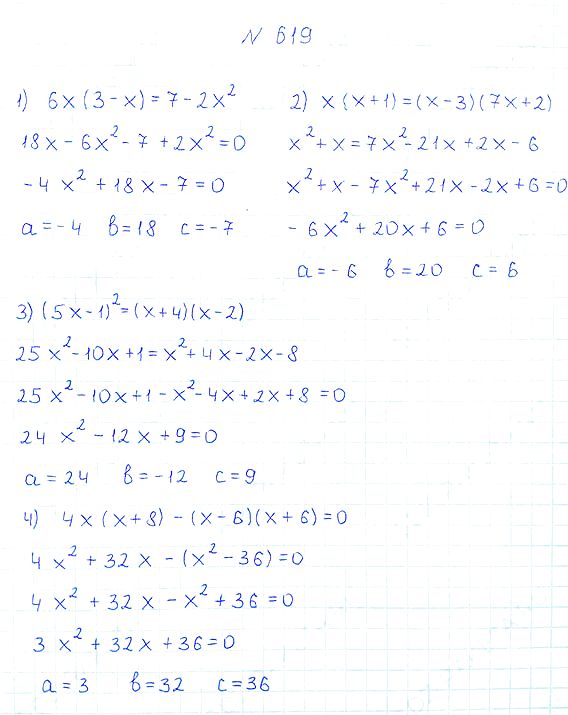 N 619
1) 6x(3-x)=7-2x²
18x-6x²-7+2x²=0
-4x²+18x-7=0
a=-4 b=18 c=-7
2) x(x+1)=(x-3)(7x+2)
x²+x=7x²-21x+2x-6
x²+x-7x²+21x-2x+6=0
-6x²+20x+6=0
a=-6 b=20 c=6
3) (5x-1)²=(x+4)(x-2)
25x²-10x+1=x²+4x-2x-8
25x²-10x+1-x²-4x+2x+8=0
24x²-12x+9=0
a=24 b=-12 c=9
4) 4x(x+8)-(x-6)(x+6)=0
4x²+32x-(x²-36)=0
4x²+32x-x²+36=0
3x²+32x+36=0
a=3 b=32 c=36